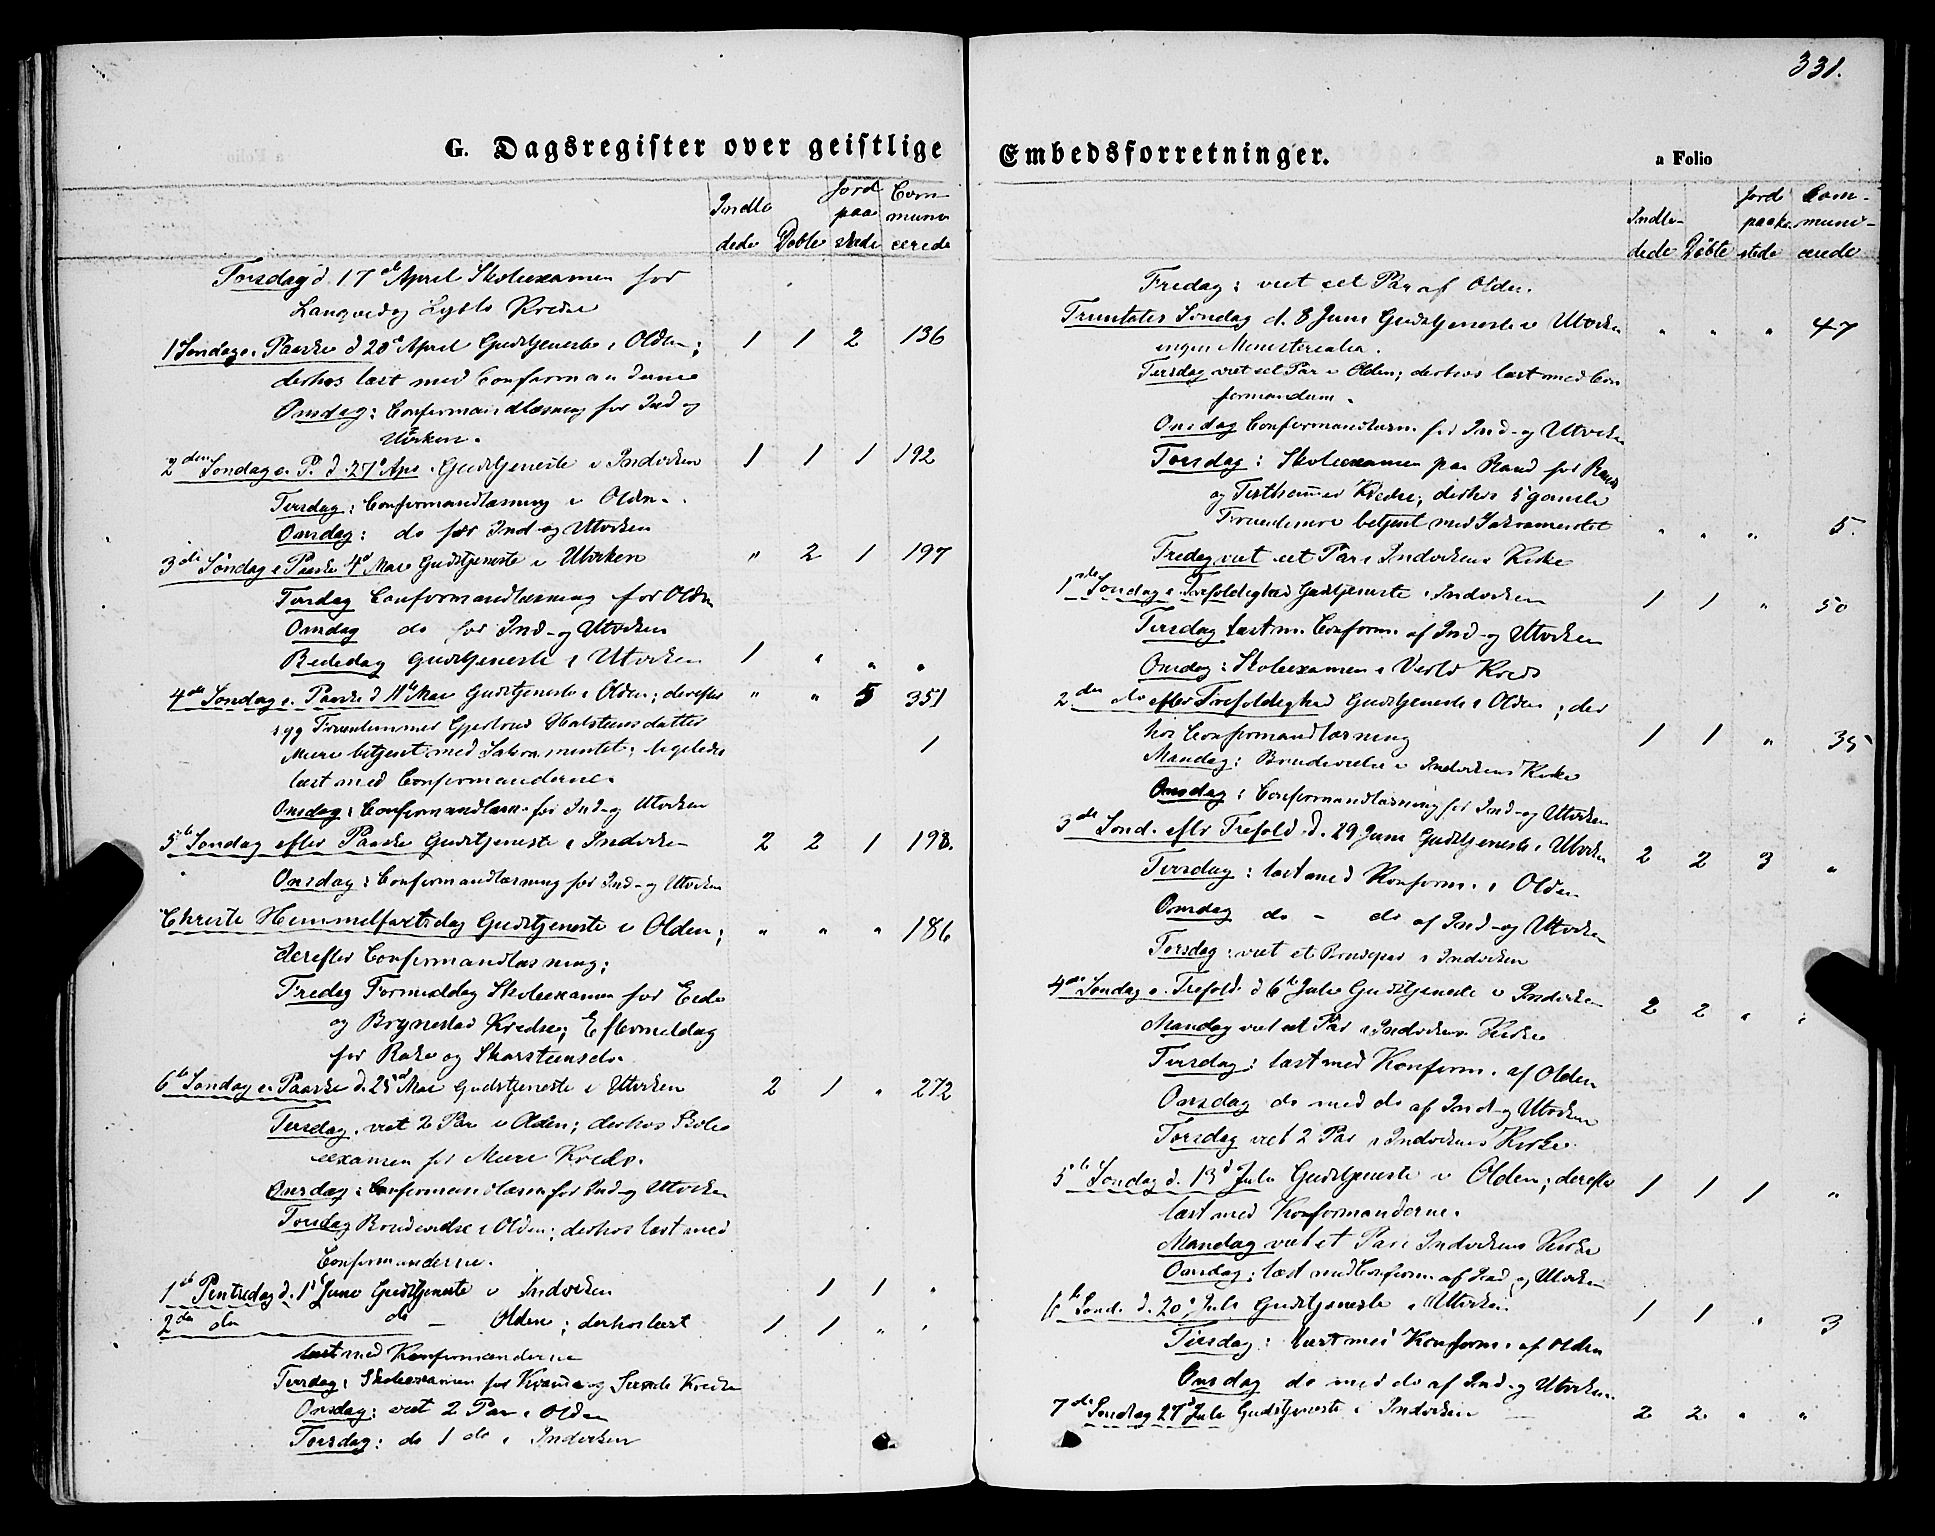 331.
G. Dagsregister over geistlige
Embedsforretninger.
a Folio
Indle dede | Døbte | Jord paa stede | Com- muni cerede
Torsdag d. 17de April Skoleexamen for
Langved og Kredse
1 Søndag e. Paaske d 20de April Gudstjeneste i Olden; 1 1 2 136
derhos læst med Confirmanderne
Onsdag: Confirmandlæsning for Ind og
Utviken.
2den Søndag e. P. d. 27de Apr. Gudstjeneste i Indviken 1 1 1 192
Tirsdag: Confirmandlæsning i Olden.
Onsdag: do for Ind- og Utviken
3die Søndag e Paaske 4de Mai Gudstjeneste i Utviken " 2 1 197
Tirsdag Confirmandlæsning for Olden
Onsdag do for Ind- og Utviken
Bededag Gudstjeneste i Utviken 1 " " "
4de Søndag e. Paaske d 11te Mai Gudstjeneste i Olden; derefter " " 5 351
syg Fruentimmer Gjertrud Halsteinsdatter
Muri betjent med Sakramentet; ligeledes 1
læst med Confirmanderne.
Onsdag: Confirmandlæsn. for Ind- og Utviken
5te Søndag efter Paaske Gudstjeneste i Indviken 2 2 1 198.
Onsdag: Confirmandlæsning for Ind- og Utviken
Christi Himmelfartsdag Gudstjeneste i Olden; " " " 186
derefter Confirmandlæsning;
Fredag Formiddag Skoleexamen for Eide
og Brynestad Kredse; Eftermiddag
for Rake og Skarsteinsdn.
6te Søndag e. Paaske d. 25de Mai Gudstjeneste i Utviken 2 1 " 272
Tirsdag. viet 2 Par i Olden; derhos Skole
examen for Muri Kreds.
Onsdag: Confirmandlæsn for Ind- og Utviken
Torsdag Brudevielse i Olden; derhos læst med
Confirmanderne.
1ste Pintsedag d. 1ste Juni Gudstjeneste i Indviken 1 1 "
2den do do – Olden; derhos læst 1. 1 " "
læst med Konfirmanderne
Tirsdag: Skoleexamen for og Kredse
Onsdag: viet 2 Par i Olden
Torsdag: do 1 do i Indviken
Indle- dede | Døbte | Jord paaka stede | Com- muni- cerede
Fredag: viet eet Par af Olden.
Trinitatis Søndag d. 8 Juni Gudstjeneste i Utviken " " " 47
ingen Ministerialia.
Tirsdag viet eet Par i Olden; derhos læst med Con
firmanderne.
Onsdag Confirmandlæsn. for Ind- og Utviken
Torsdag: Skoleexamen paa Rand for Rand
og Tisthammer Kredse; derhos 5 gamle
Fruentimre betjent med Sakramentet " " " 5.
Fredag viet eet Par i Indvikens Kirke
1ste Søndag e. Trefoldighed Gudstjeneste i Indviken 1 1 " 50
Tirsdag læst m. Confirm. af Ind- og Utviken
Onsdag: Skoleexamen i Kreds
2den do efter Trefoldighed Gudstjeneste i Olden; der
hos Confirmandlæsning 1 1 " 35
Mandag: Brudevielse i Indvikens Kirke
Onsdag: Confirmandlæsning for Ind- og Utviken
3die Sønd. eftr Trefold. d. 29 Juni Gudstjeneste i Utviken 2 2 3 "
Tirsdag: læst med Konfirm. i Olden
Onsdag do – do af Ind- og Utviken
Torsdag: viet et Brudepar i Indviken
4de Søndag e. Trefold. d 6te Juli Gudstjeneste i Indviken 2 2 " "
Mandag viet et Par i Indvikens Kirke
Tirsdag: læst med Konfirm. af Olden
Onsdag do med do af Ind- og Utviken
Torsdag viet 2 Par i Indvikens Kirke.
5te Søndag d. 13de Juli Gudstjeneste i Olden; derefter 1 1 1 "
læst med Konfirmanderne.
Mandag viet et Par i Indvikens Kirke
Onsdag; læst med Confirm. af Ind- og Utviken
6te Sønd. d. 20de Juli Gudstjeneste i Utviken 1 1 " 3
Tirsdag: læst med Konfirm. af Olden
Onsdag do med do af Ind- og Utviken.
7de Søndag 27de Juli Gudstjeneste i Indviken 2 2 " "